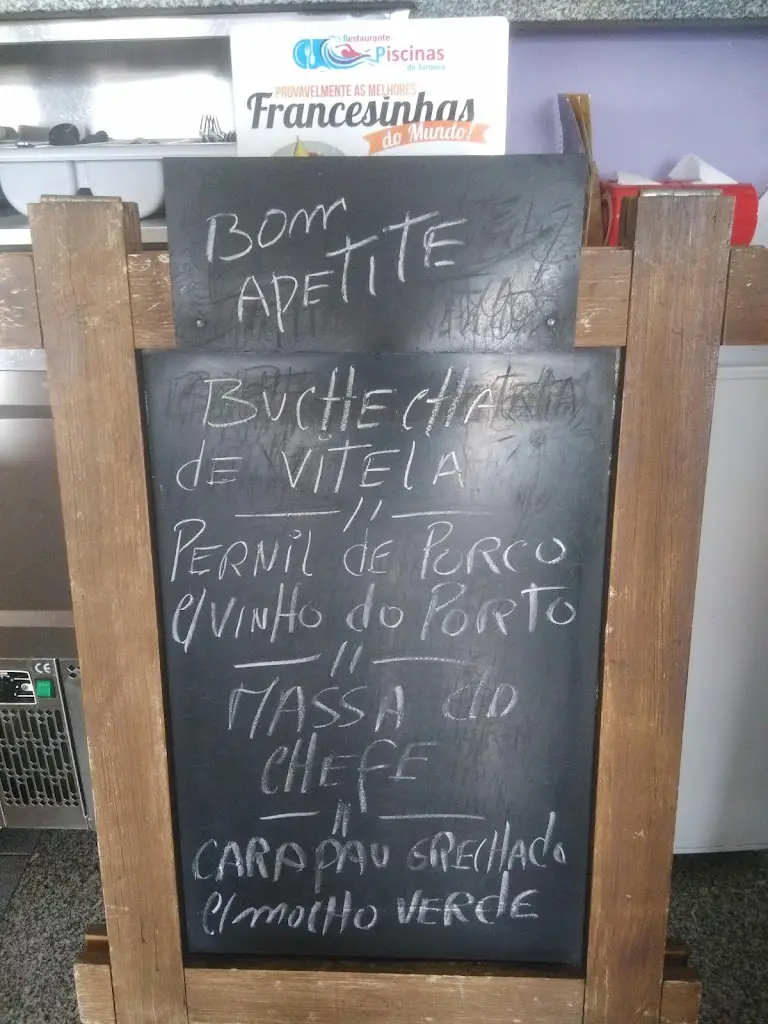 Restaurante
Piscinas
de Tarouca
PROVAVELMENTE AS MELHORES
Francesinhas
do Mundo!
BOM
APETITE
BUCHECHA
de VITELA
PERNIL de PORCO
C/VINHO do PORTO
MASSA do
CHEFE
CARAPAU GRECHADO
C/MOLHO VERDE
CE